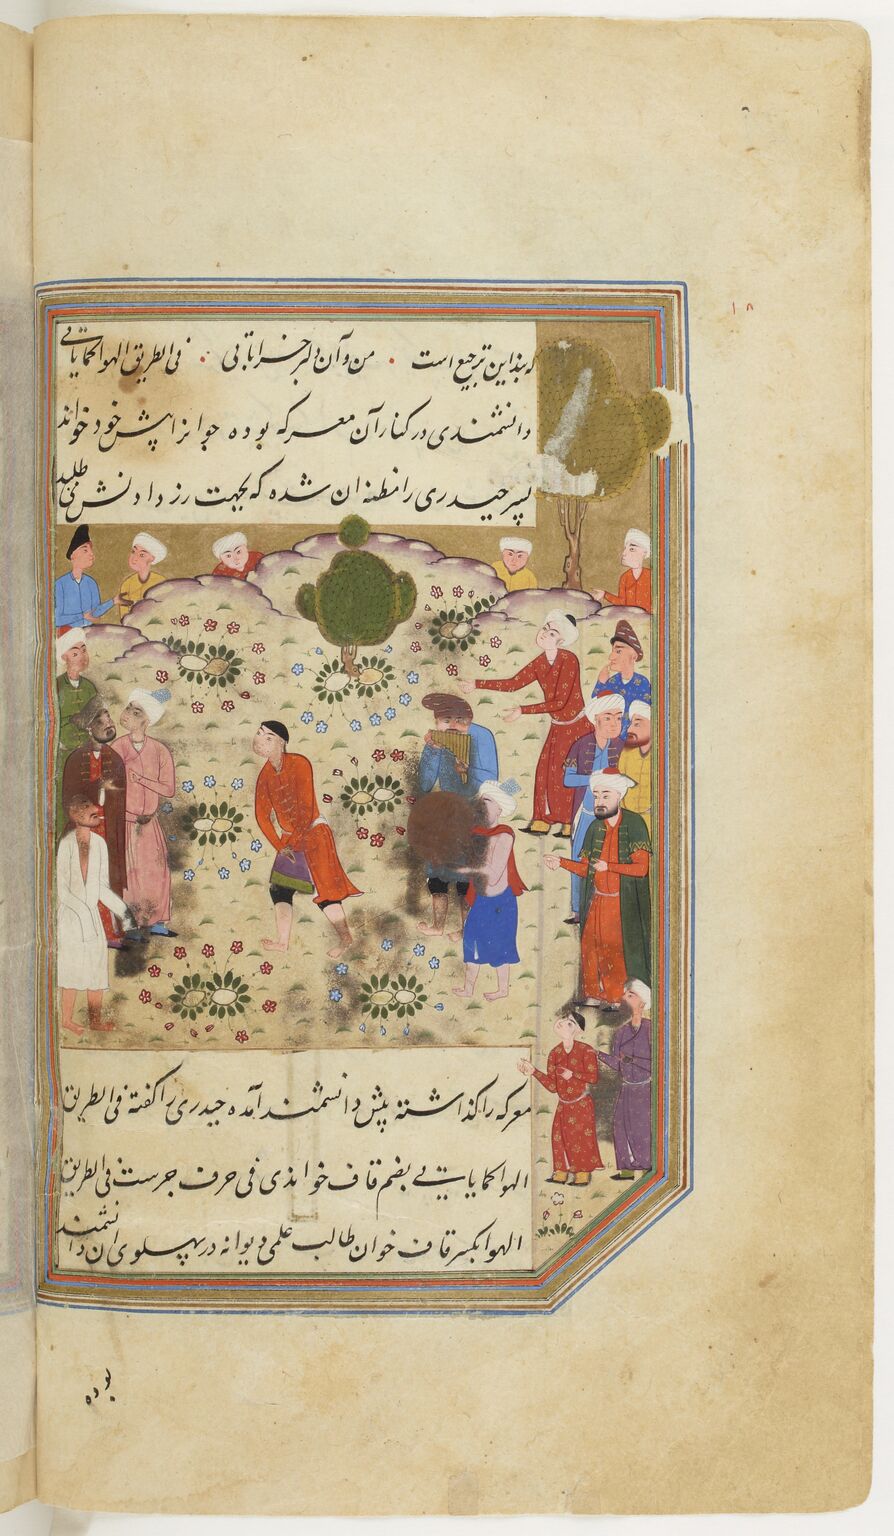 که بند این ترجیع است • من و آن دلبر خراباتی • فی الطریق الهوا کمایاتی
دانشمندی در کنار آن معرکه بوده جوانرا پیش خود خواند
پسر حیدری را مظنه آن شده که بجهت زر دادنش می طلبد
معرکه را گذاشته پیش دانشمند آمده حیدری را گفته فی الطریق
الهوا کمایاتی بضم قاف خواندی فی حرف جرست فی الطریق
الهوا بکسر قاف خوان طالب علمی دیوانه در پهلوی آن دانشمند
بوده
۱۸